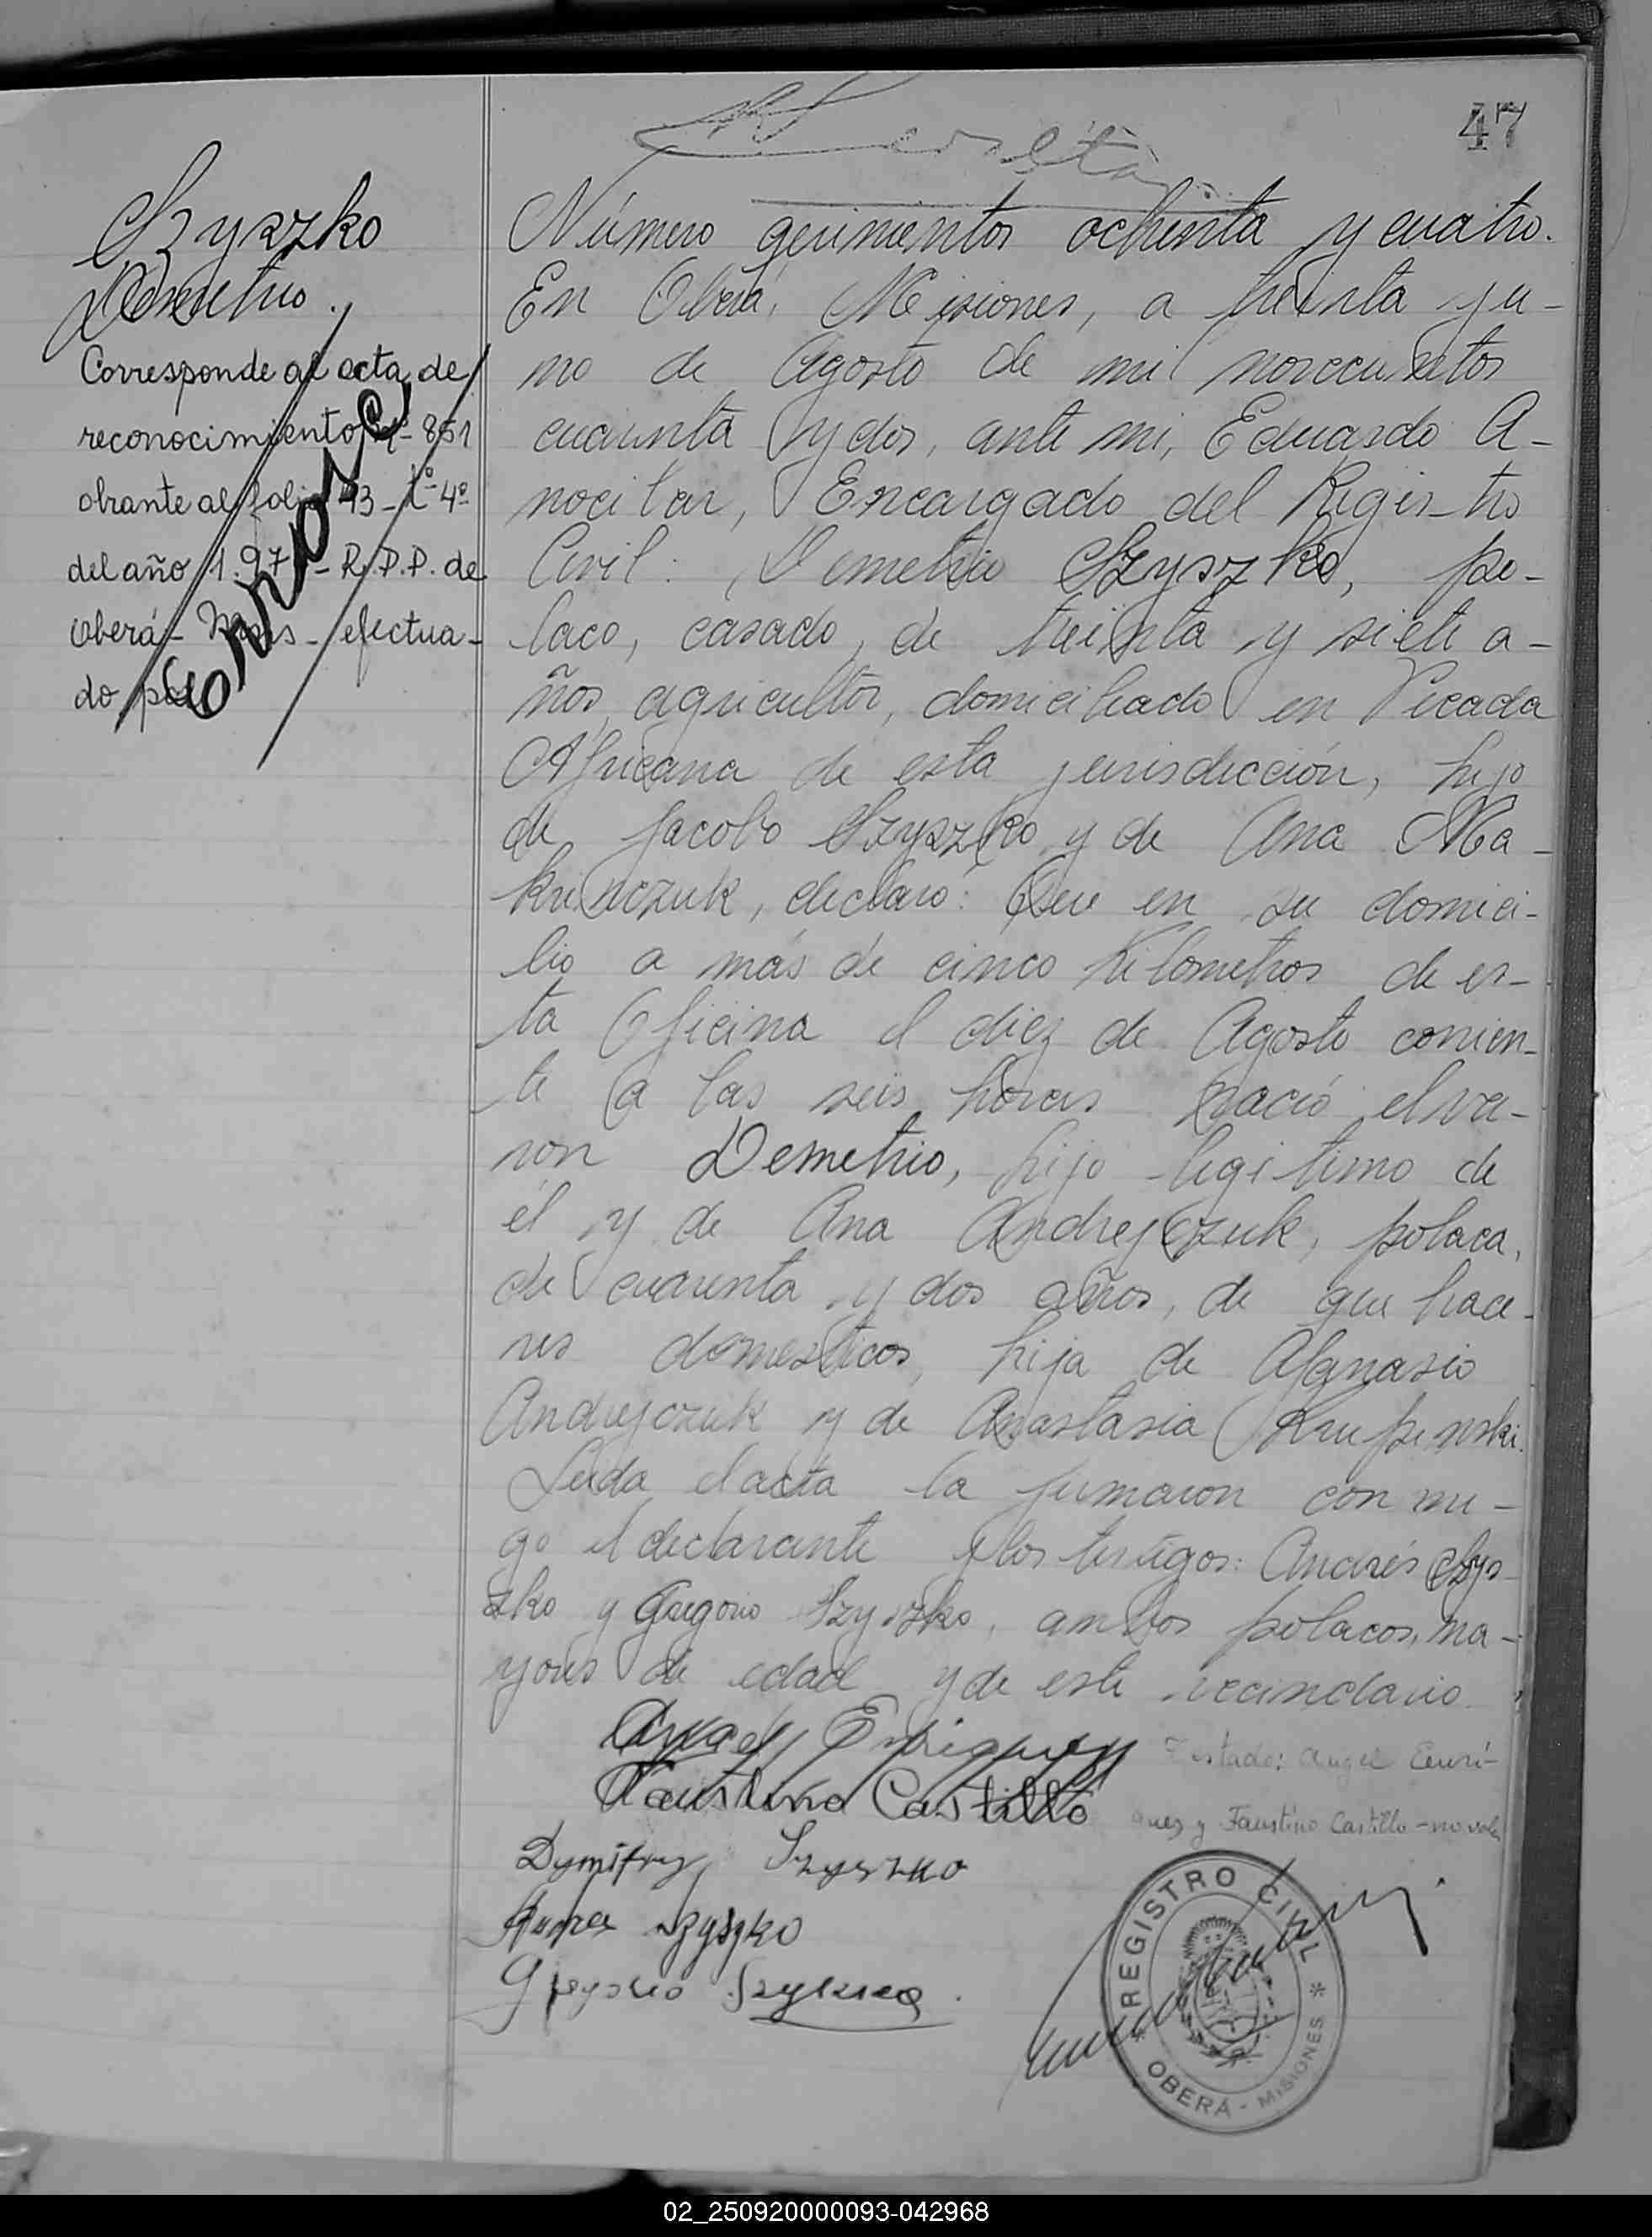 47
Szyszko
Demetrio.
Corresponde al acta de
reconocimiento Nº 851
obrante al folio 43 - tº 4º
del año 1.97 - R.P.P. de
Oberá - Mnes - efectua-
do por
Errose
Número quinientos ochenta y cuatro.
En Oberá, Misiones, a treinta y u-
no de Agosto de mil novecientos
cuarenta y dos, ante mi, Eduardo A-
nocibar, Encargado del Regis-tro
Civil: Demetrio Szyszko, po-
laco, casado, de treinta y siete a-
ños, agricultor, domiciliado en Picada
Africana de esta jurisdicción, hijo
de Jacobo Szyszko y de Ana Ma-
krinczuk, declaró: Que en su domici-
lio a más de cinco kilometros de es-
ta Oficina el diez de Agosto corrien-
te a las seis horas nació el va-
ron Demetrio, hijo legitimo de
él y de Ana Andrejczuk, polaca,
de cuarenta y dos años, de que hace-
res domesticos, hija de Afanasio
Andrejczuk y de Anastasia Krupinski.
Leida el acta la firmaron con mi-
go el declarante y los testigos: Andrés Szys-
zko y Gregorio Szyszko, ambos polacos, ma-
yores de edad y de este vecindario.
Angel Enriquez
Testado: Angel Enri-
Faustino Castillo
quez y Faustino Castillo - no vale
Dymitry Szyszko
Szyszko
Gregorio
REGISTRO CIVIL
OBERÁ - MISIONES
02_250920000093-042968